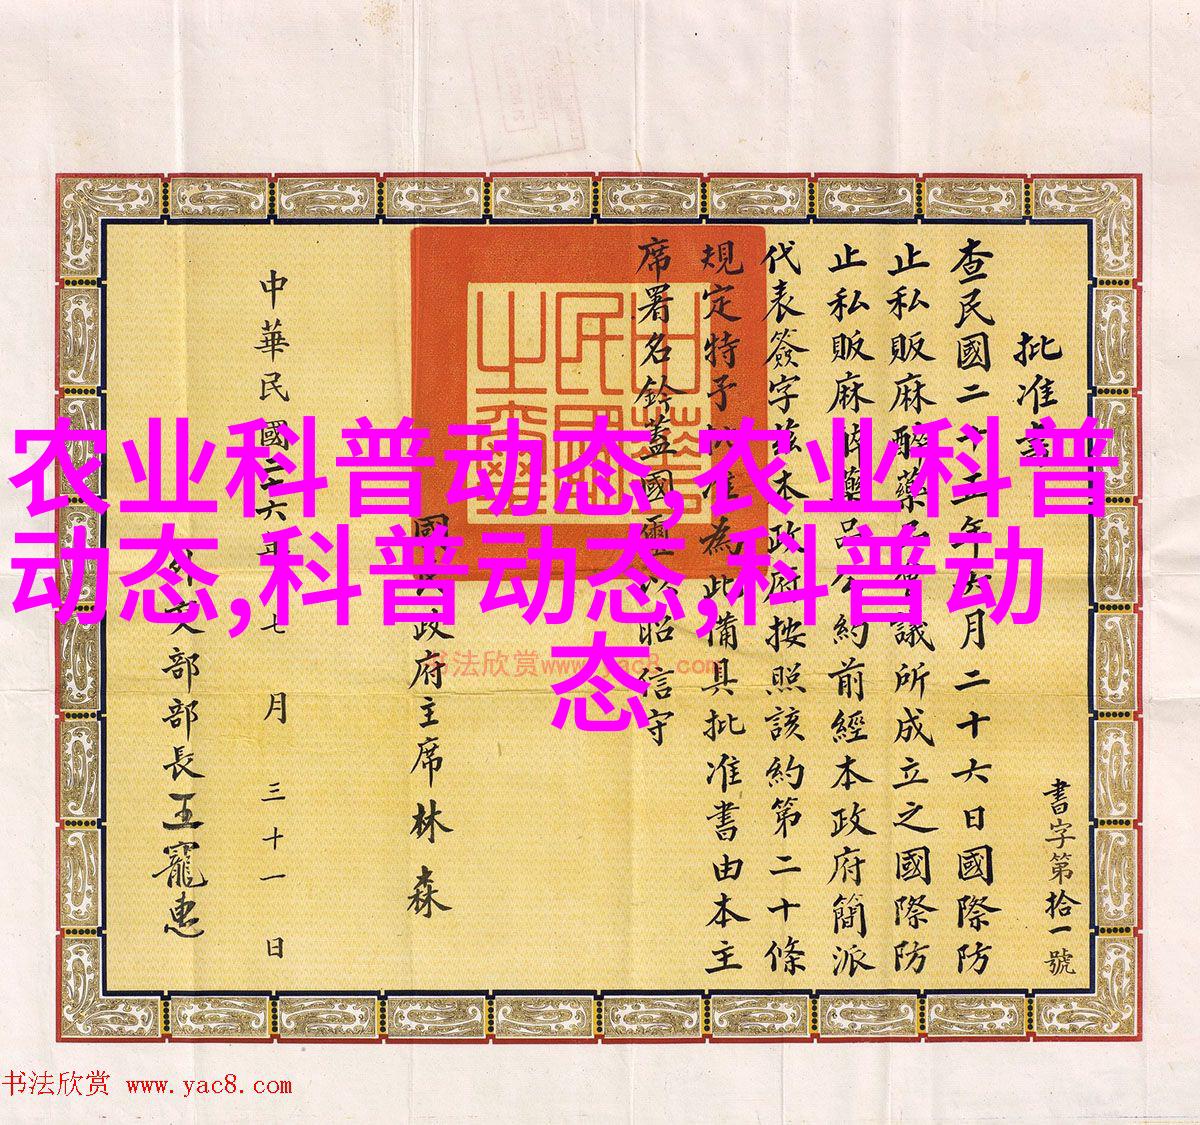 農业科普动态,农业科普
动态,科普动态,科普动
态
批准書
書字第拾一號
查民國二十五年六月二十六日國際防
止私販麻醉藥品會議所成立之國際防
止私販麻醉藥品公約前經本政府簡派
代表簽字茲本政府按照該約第二十條
規定特予批准為此備具批准書由本主
席署名鈐蓋國璽以昭信守
國民政府主席林森
中華民國二十六年七月三十一日
外交部部長王寵惠
中華民國之璽
书法欣赏 www.yac8.com
书法欣赏 www.yac8.com